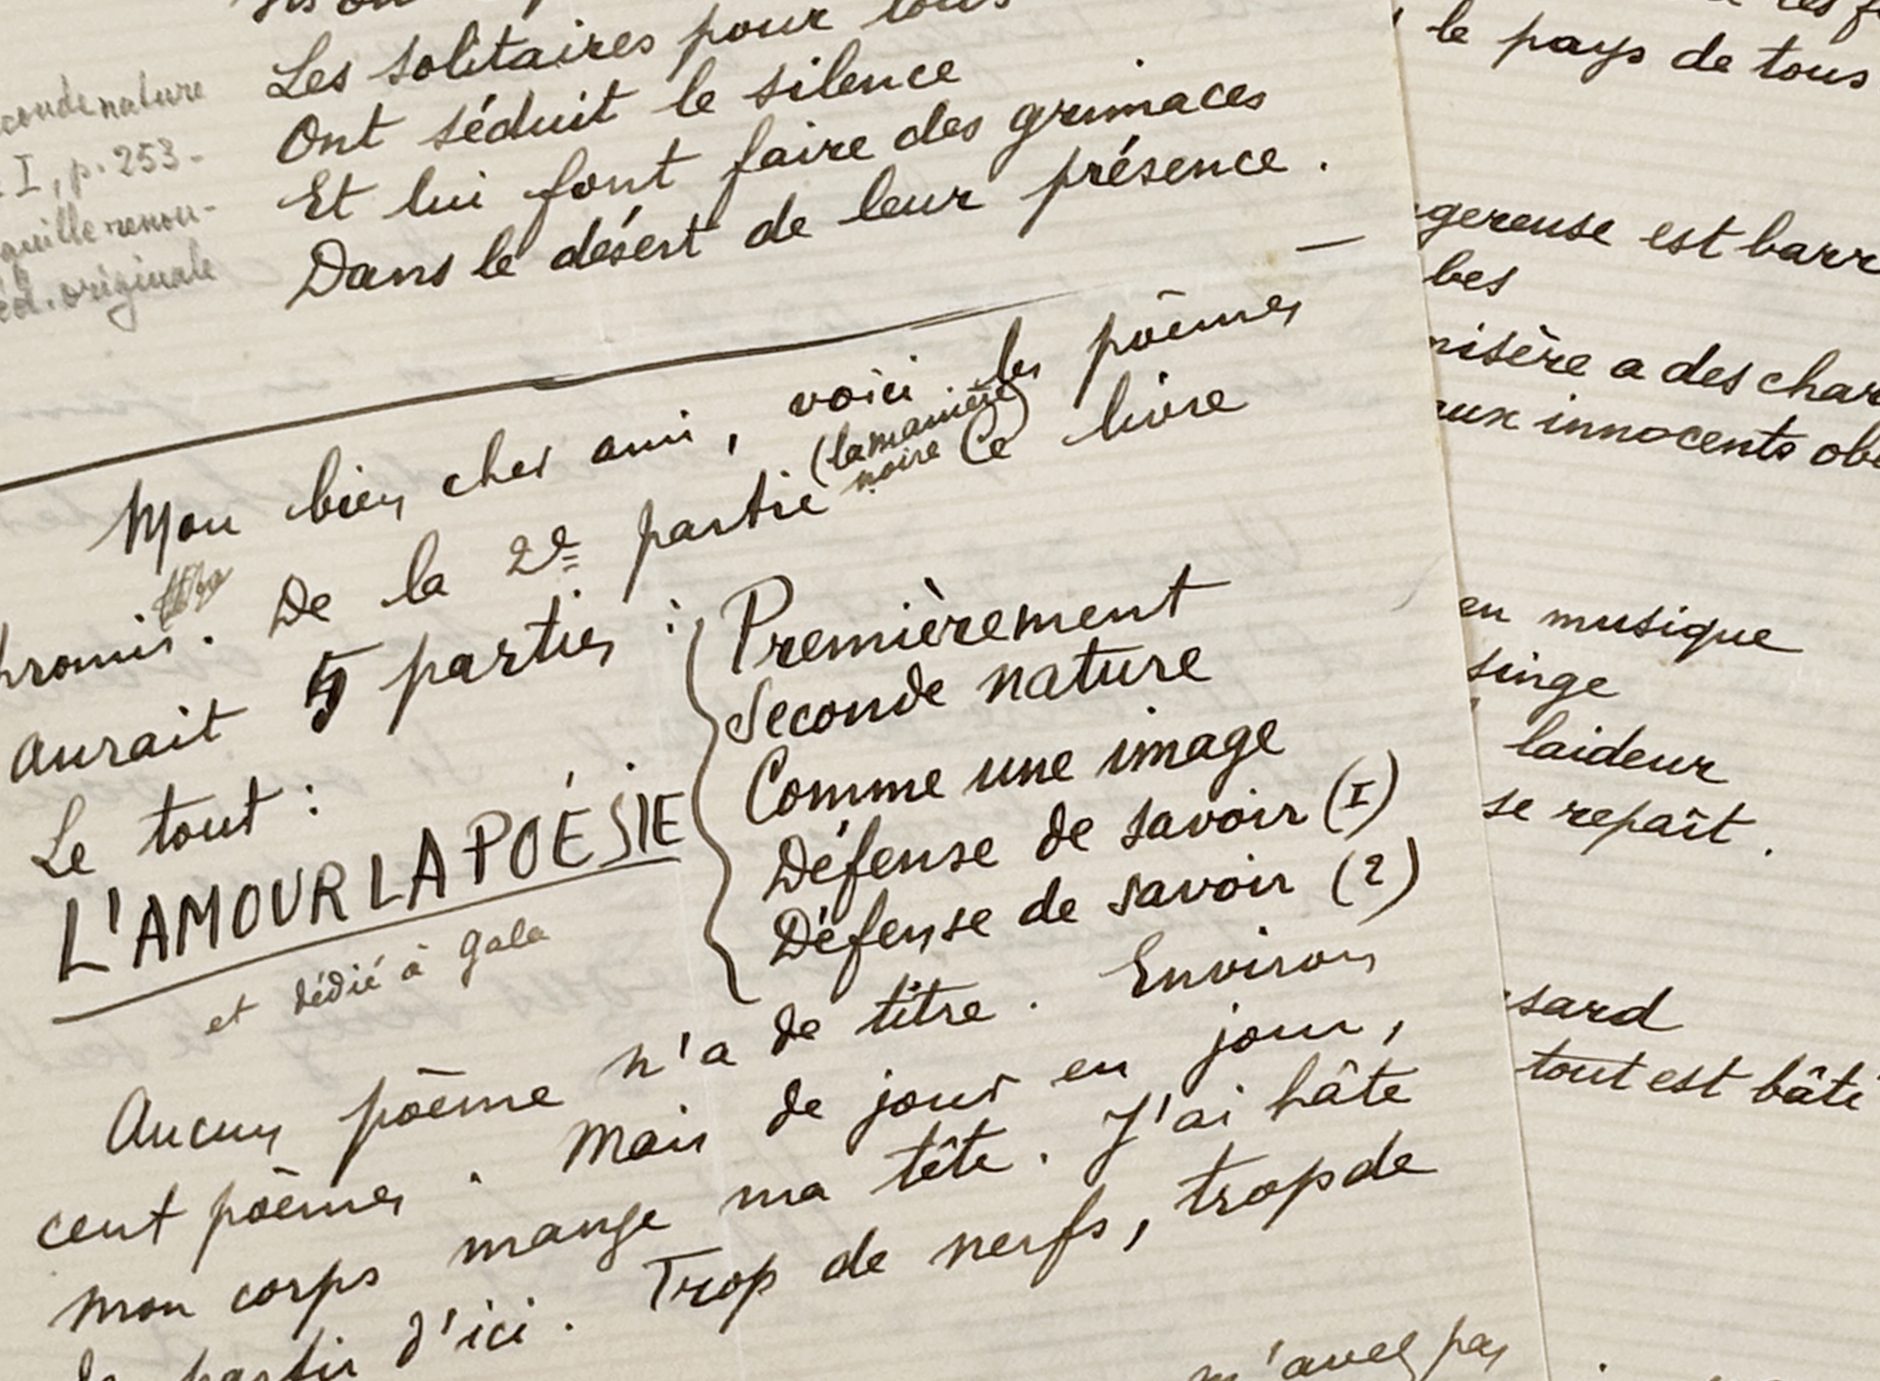 Les solitaires pour tous
Ont séduit le silence
Et lui font faire des grimaces
Dans le désert de leur présence.
conde nature
I, p. 253-
quille renou-
éd. originale
Mon bien cher ami, voici les poèmes
promis. De la 2e partie (la manière
noire) Ce livre
aurait 5 parties :
Premièrement
Seconde nature
Comme une image
Défense de savoir (I)
Défense de savoir (2)
Le tout :
L'AMOUR LA POÉSIE
et dédié à Gala
Aucun poème n'a de titre. Environ
cent poèmes. Mais de jour en jour,
mon corps mange ma tête. J'ai hâte
de partir d'ici. Trop de nerfs, trop de
m'avez pas
le pays de tous
gereuse est barr
bes
misère a des char
aux innocents obé
en musique
singe
laideur
se repaît.
sard
tout est bâti